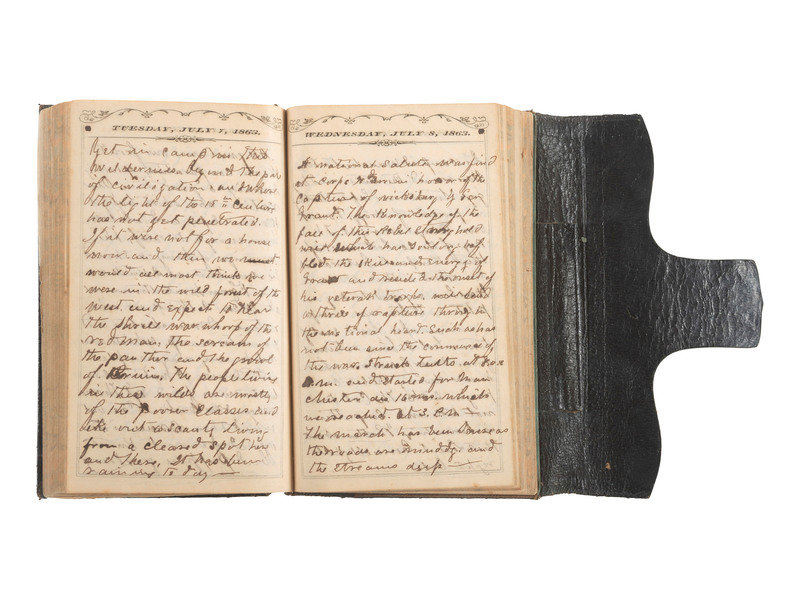 TUESDAY, JULY 7, 1863.
Yet in camp in this
wilderness beyond the pale
of civilization and where
the light of the 18th century
has not yet penetrated.
If it were not for a house
now and then we
would all most think we
were in the wild forest of the
west and expect to hear
the shrill war whoop of the
red man, the scream of
the panther and the growl
of Bruin. The people living
in these wilds are mostly
of the Poorer Classes and
eke out a scanty living
from a cleared spot here
and there. It has been
raining to day
WEDNESDAY, JULY 8, 1863.
A national Salute was fired
at Corps in honor of the
capture of vicksburg by Gen
Grant. The Knowledge of the
fall of this Rebel Strong hold
which has so long baf
fled the skill and energy of
Grant and resisted the onset of
his veteran troops, will send
a thrill of rapture through
the national heart. Such as has
not been since the commence of
the war. Struck tents at
a.m. and started for Man
chester dis 16 ms. which
we reached at 3. P.M.
The march has been as
the roads are muddy and
the streams deep